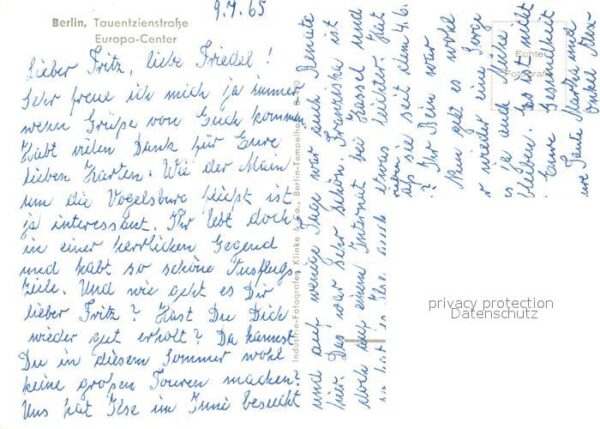 9.7.65
Berlin, Tauentzienstraße
Europa-Center
Lieber Fritz, liebe Friedel!
Sehr freue ich mich ja immer
wenn Grüße von Euch kommen
Habt vielen Dank für Eure
lieben Karten. Wie der Main
um die Vogelsburg fließt ist
ja interessant. Ihr lebt doch
in einer herrlichen Gegend
und habt so schöne Ausflugs
ziele. Und wie geht es Dir
lieber Fritz? Hast Du Dich
wieder gut erholt? Da kannst
Du in diesem Sommer wohl
keine großen Touren machen.
Uns hat Ilse im Juni besucht
und auf wenige Tage war auch Renate
hier. Das war sehr schön. Franziska ist
doch auf einem Internat bei Kassel und
es hat es Ilse auch etwas leichter. Hat
sie seit dem 4.6.
? Ihr Bein war
Nun geht es wohl
wieder eine Sorge
es ja auch
bleiben. Es ist nicht
Eure Gesundheit
Eure Tante Martha und
Onkel
Echte
Fotografie
Industrie-Fotografen Klinke & Co., Berlin-Tempelhof
privacy protection
Datenschutz